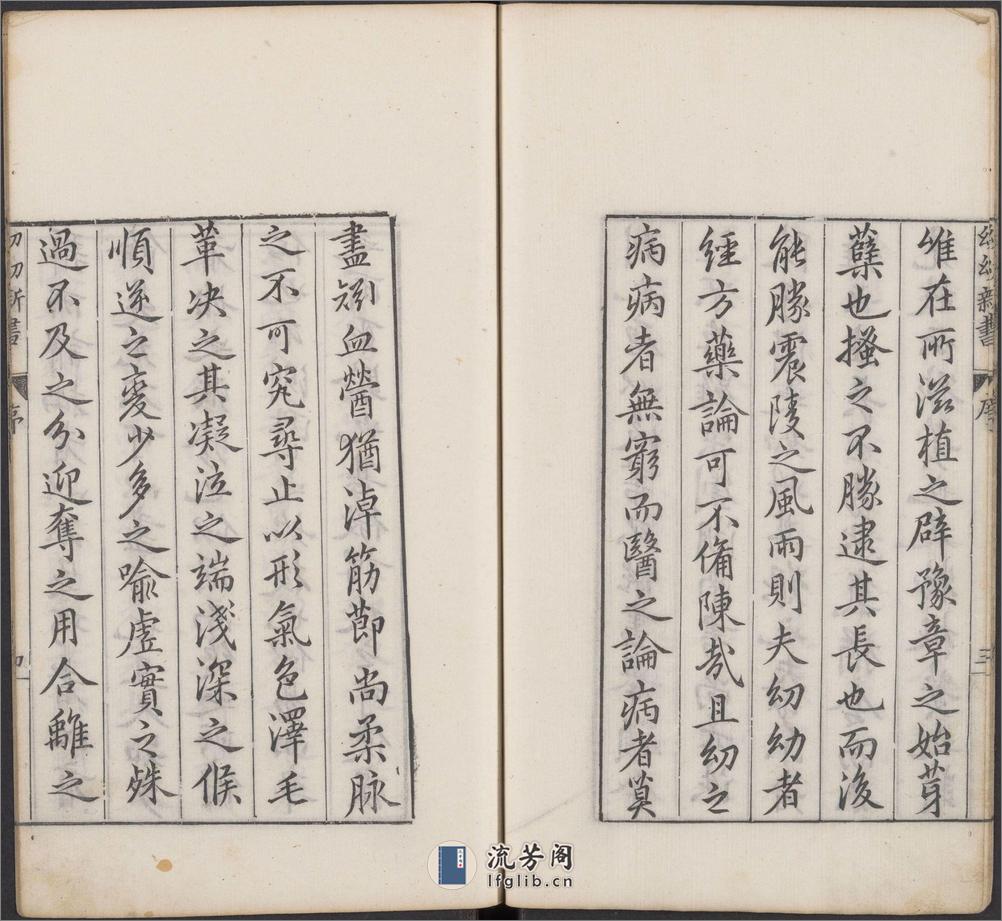 幼幼新書 序 三
維在所滋植之辟豫章之始芽
蘖也搔之不勝逮其長也而後
能勝震陵之風雨則夫幼幼者
經方藥論可不備陳哉且幼之
病病者無窮而醫之論病者莫
盡矧血醟猶淖筋節尚柔脉
之不可究尋止以形氣色澤毛
革决之其凝泣之端淺深之候
順逆之變少多之喩虛實之殊
過不及之分迎奪之用合離之
幼幼新書 序
流芳阁
lfglib.cn